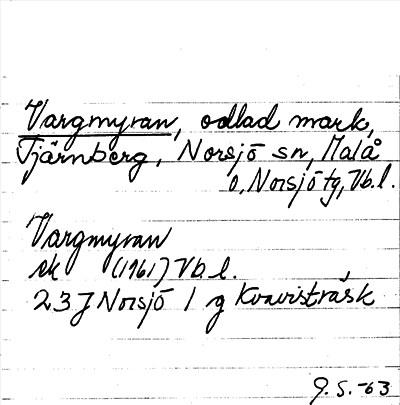 Vargmyran, odlad mark,
Tjärnberg, Norsjö sn, Malå
o, Norsjö tg, Vb. l.
Vargmyran
ek (1961) Vb. l.
23J Norsjö 1 g Kvavisträsk
G. S. -63